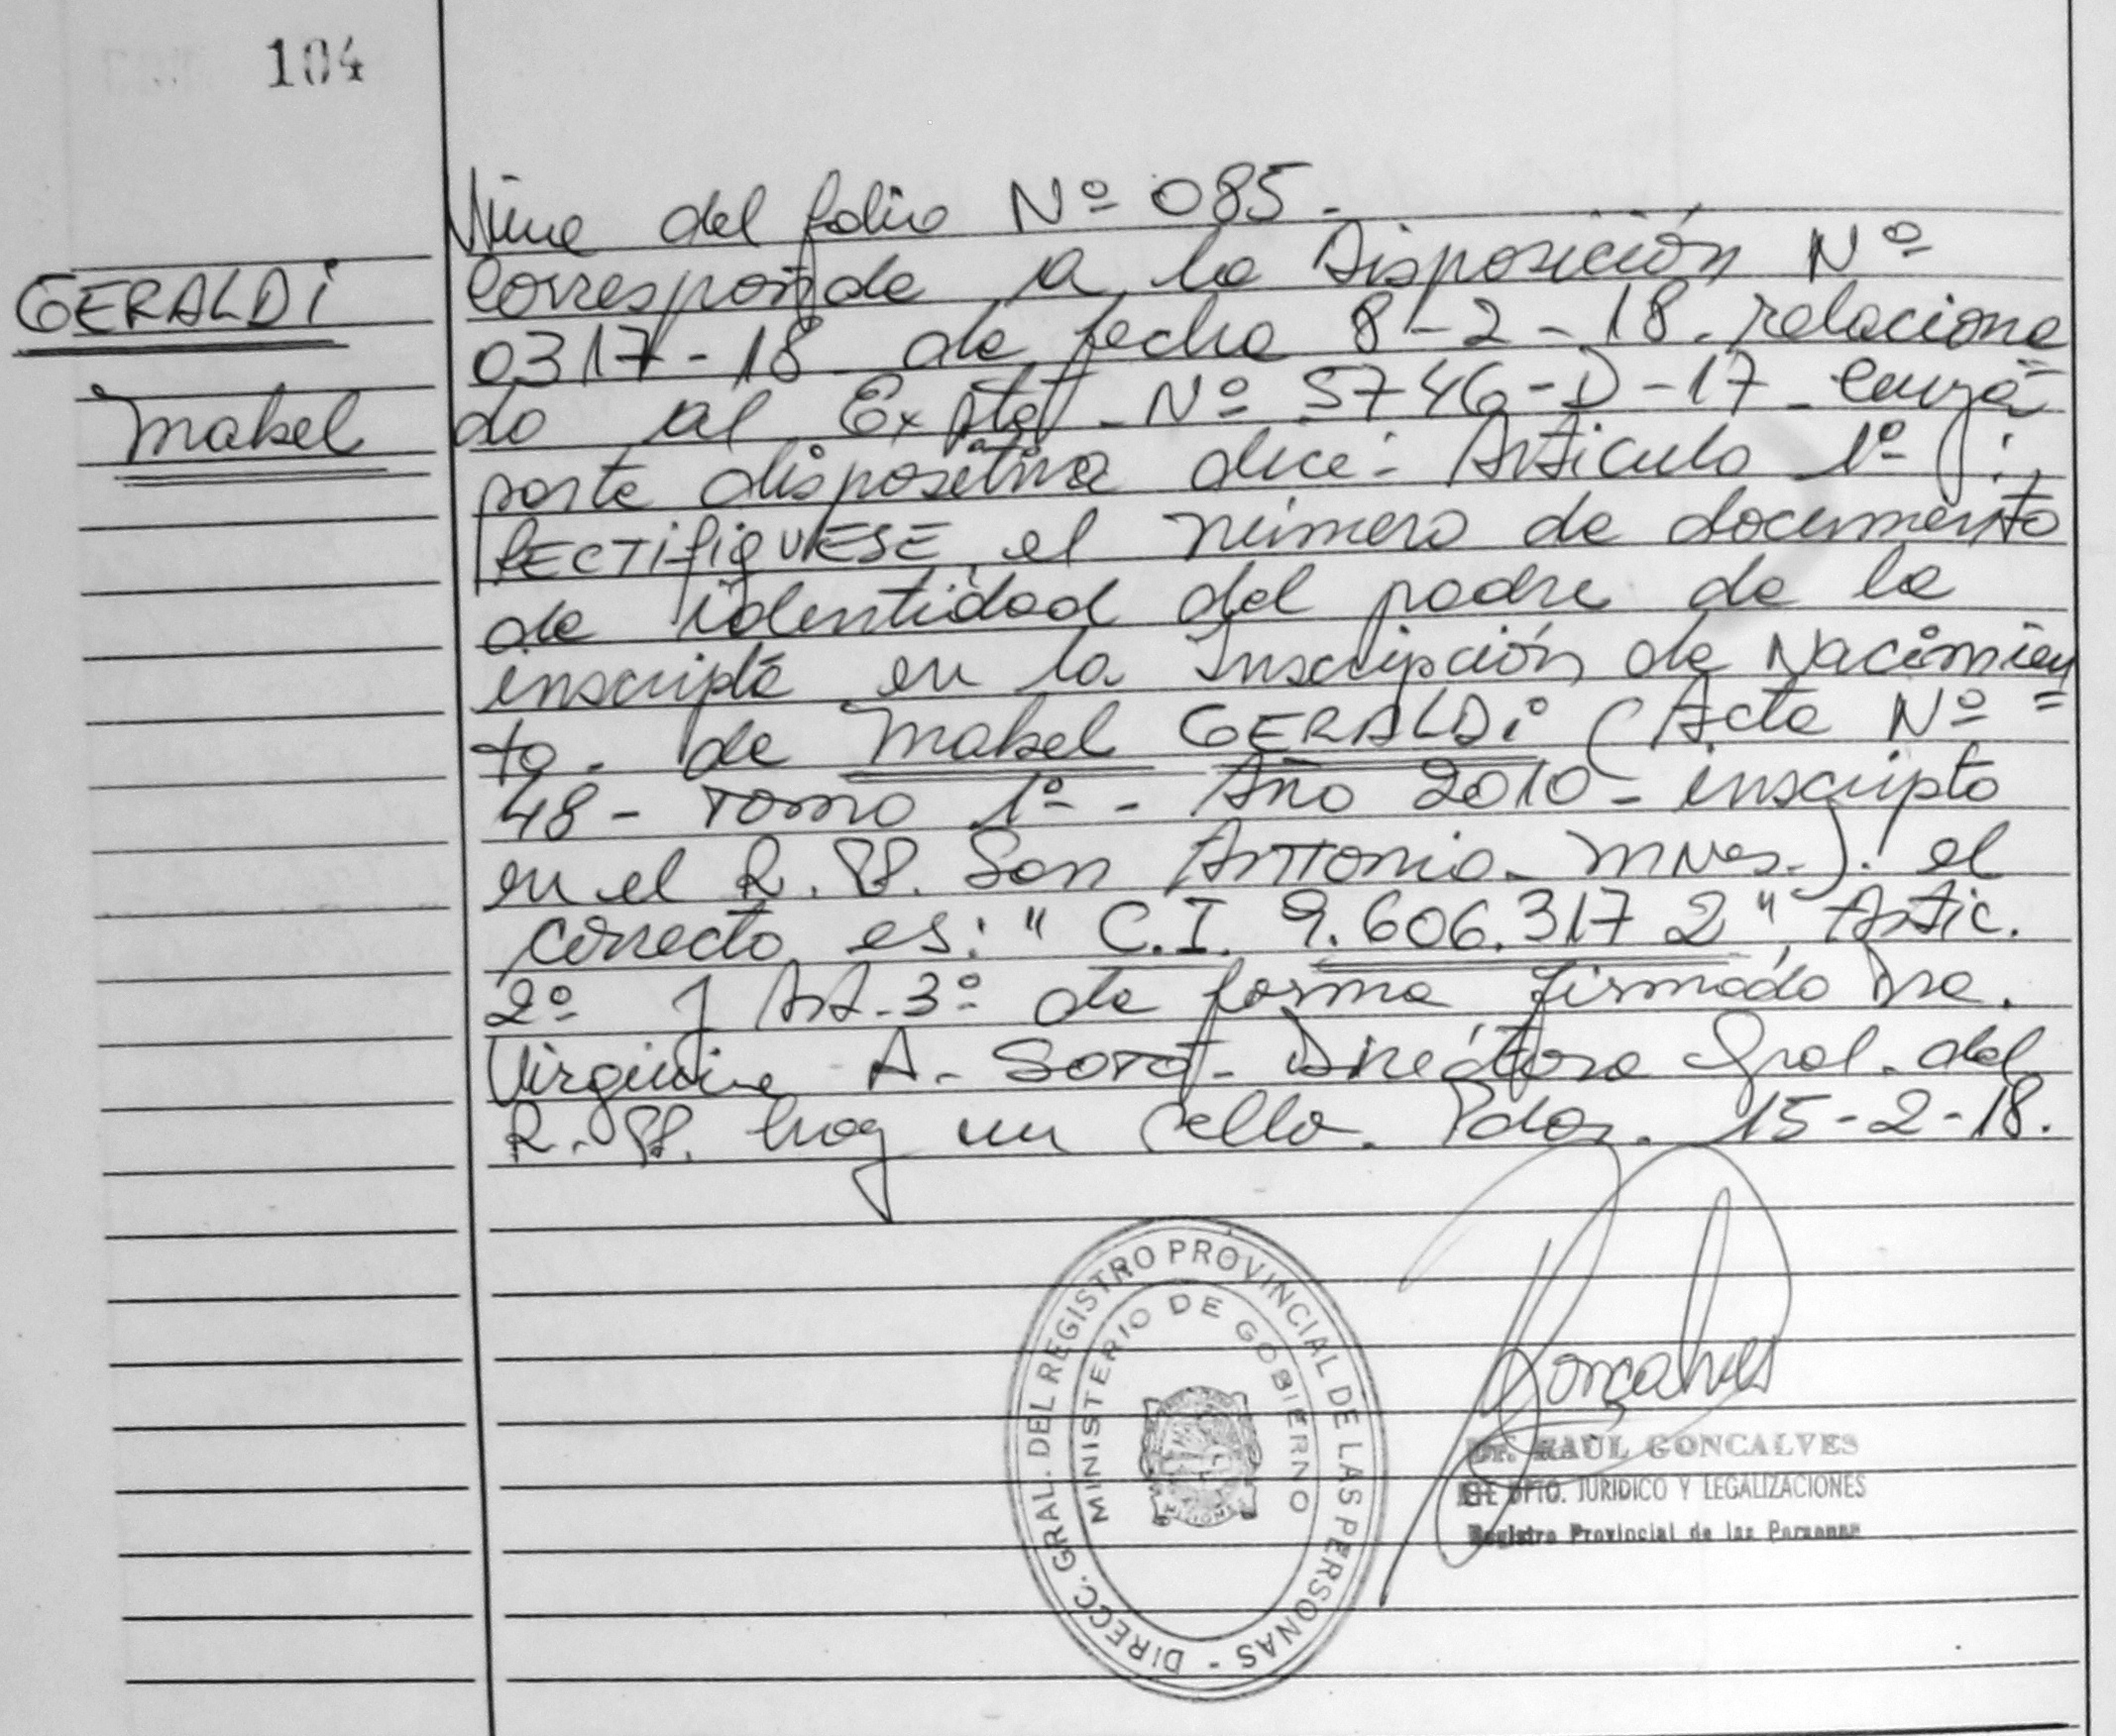 104
GERALDI
Mabel
Viene del folio Nº 085.-
Corresponde a la Disposición Nº
0317-18 de fecha 8-2-18. relaciona=
do al Expte. Nº 5746-D-17 - cuya
parte dispositiva dice: Artículo 1º:
RECTIFIQUESE, el número de documento
de identidad del padre de la
inscripta en la Inscripción de Nacimien=
to. de Mabel GERALDI (Acta Nº
48 - Tomo 1º - Año 2010 - inscripto
en el R.PP. San Antonio - Mnes.). el
correcto es: " C.I. 9.606.317 2", Artic.
2º y Art. 3º de forma firmado Dra.
Virginia A. Soto - Directora Gral. del
R.PP. hay un sello. Pdas. 15-2-18.
DIRECC. GRAL. DEL REGISTRO PROVINCIAL DE LAS PERSONAS -
MINISTERIO DE GOBIERNO
Goncalves
Dr. RAUL GONCALVES
JEFE DPTO. JURIDICO Y LEGALIZACIONES
Registro Provincial de las Personas